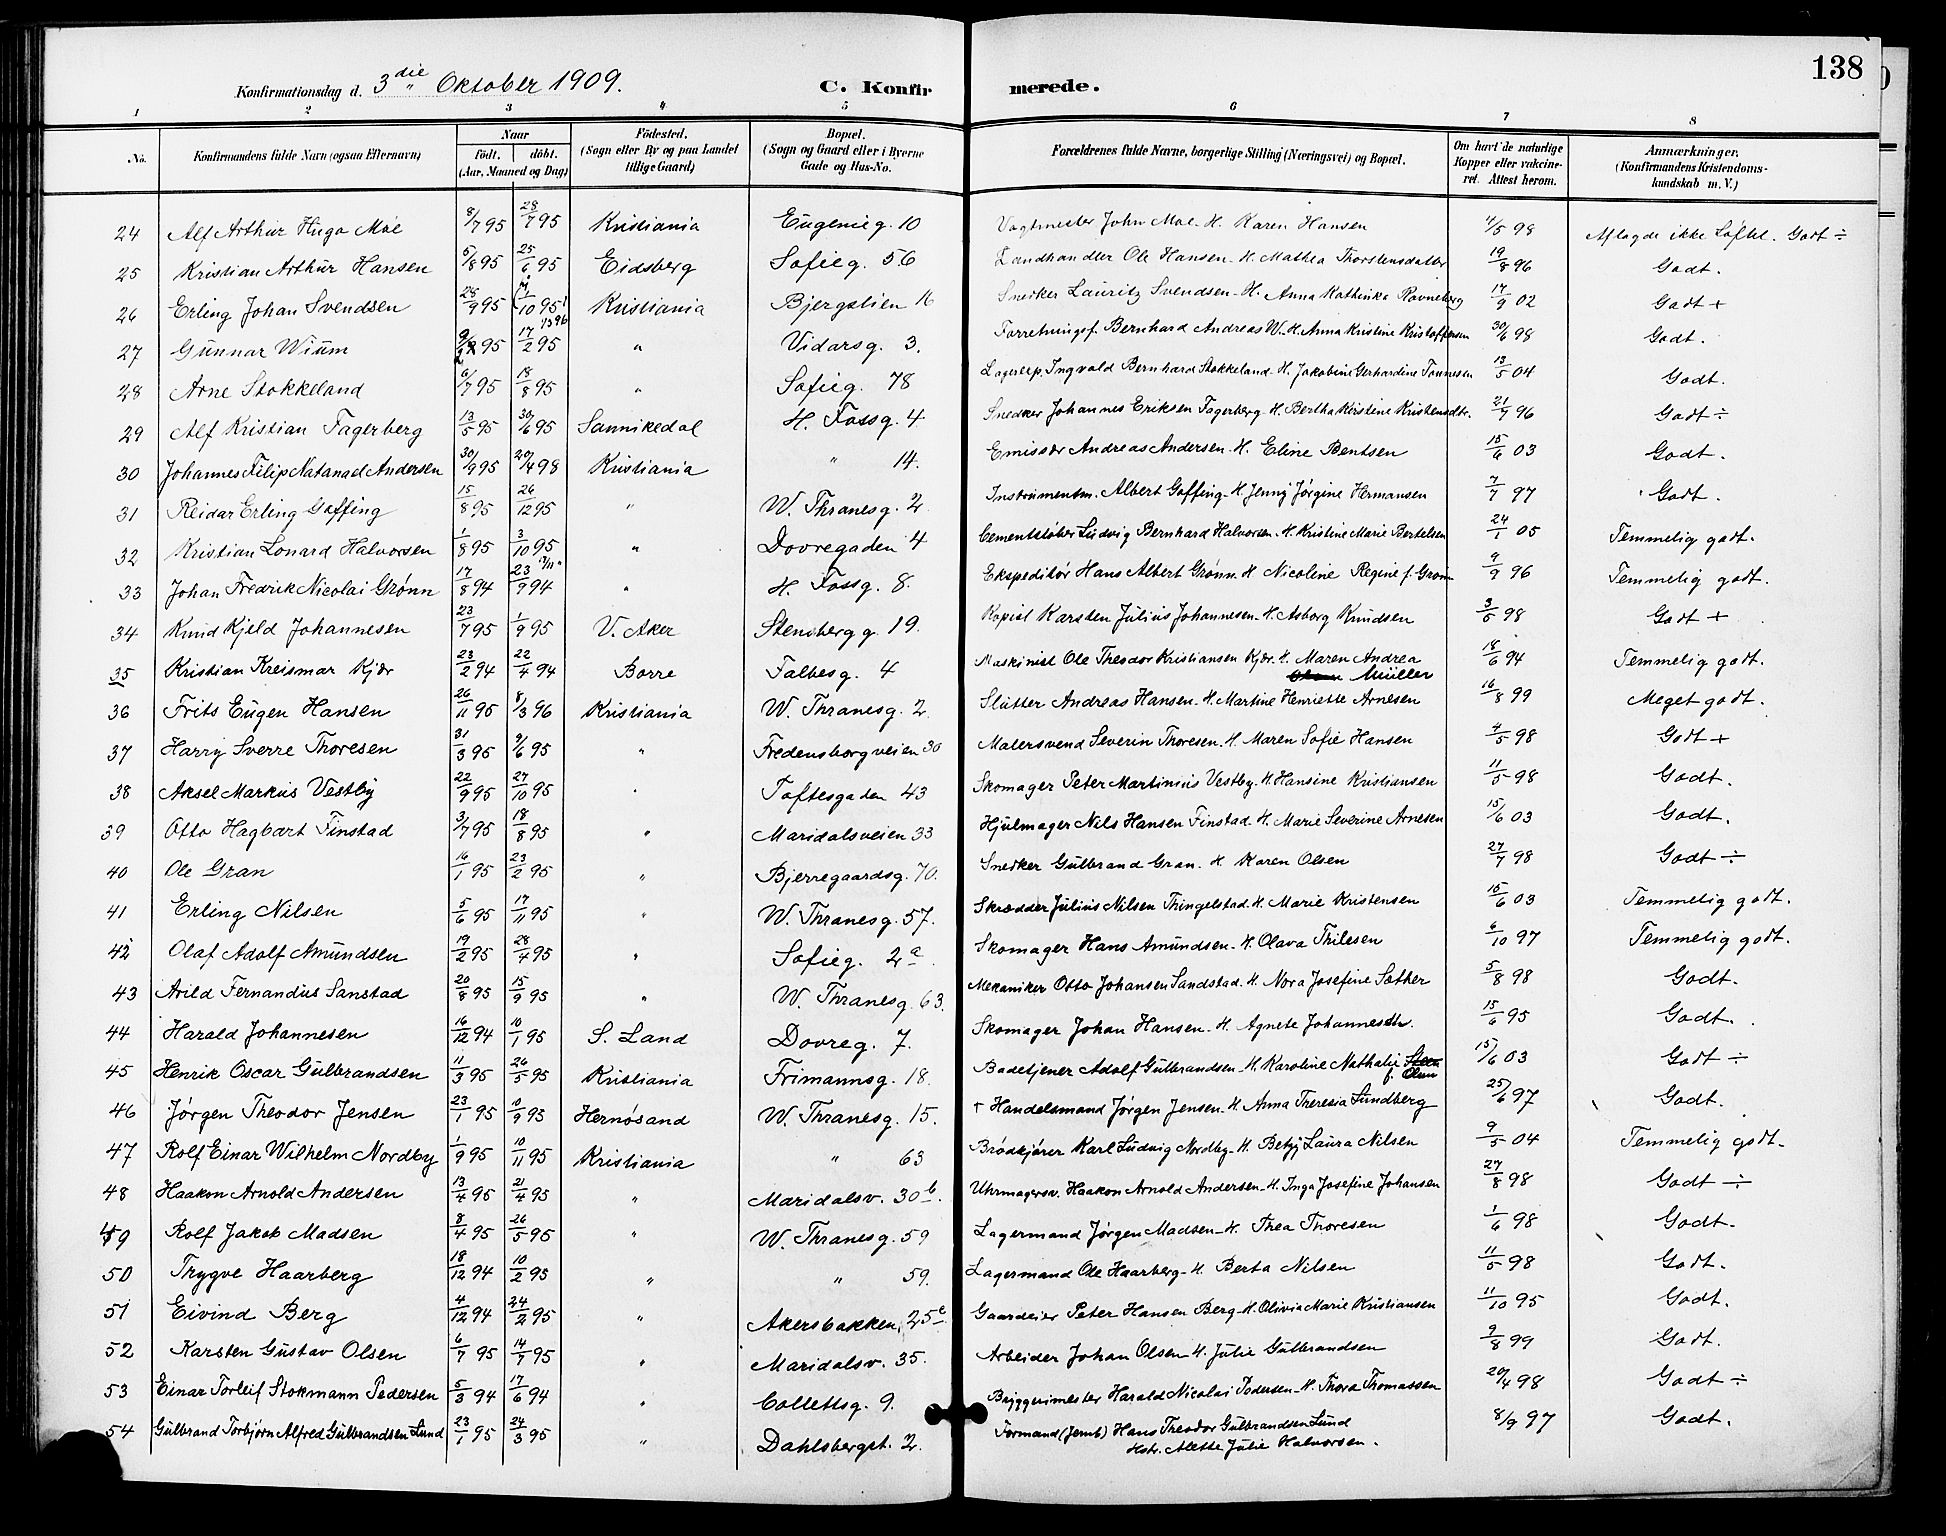 138
Konfirmationsdag d. 3die Oktober 1909. C. Konfirmerede.
1 2 3 4 5 6 7 8
No. Konfirmandens fulde Navn (ogsaa Efternavn) Naar födt. döbt. (Aar, Maaned og Dag) Födested. (Sogn eller By og paa Landet tillige Gaard) Bopæl. (Sogn og Gaard eller i Byerne Gade og Hus-No. Forældrenes fulde Navne, borgerlige Stilling (Næringsvei) og Bopæl. Om havt de naturlige Kopper eller vakcineret. Attest herom. Anmærkninger. (Konfirmandens Kristendomskundskab m. V.)
24 Alf Arthur Hugo Moe 8/7 95 28/7 95 Kristiania Eugenieg. 10 Vagtmester John Moe. H. Karen Hansen 4/5 98 Aflagde ikke Løfte. Godt ÷
25 Kristian Arthur Hansen 5/8 95 25/6 95 Eidsberg Sofieg. 56 Landhandler Ole Hansen. H. Mathea Thorstensdatter 19/8 96 Godt.
26 Erling Johan Svendsen 28/9 95 1/10 95 Kristiania Bjergstien 16 Snedker Lauritz Svendsen. H. Anna Kathinka Ravneberg 17/9 02 Godt +
27 Gunnar Wium 95 17/2 95 " Vidarsg. 3. Forretningsf. Bernhard Andreas W. H. Anna Kristine Kristoffersen 30/6 98 Godt.
28 Arne Stokkeland 6/7 95 18/8 95 " Sofieg. 78 Lagerexp. Ingvald Bernhard Stokkeland. H. Jakobine Gerhardine Tønnesen 13/5 04 Godt.
29 Alf Kristian Fagerberg 13/5 95 30/6 95 Sannikedal H. Fossg. 4 Snedker Johannes Eriksen Fagerberg. H. Bertha Kirstine Kristensdtr. 21/9 96 Godt ÷
30 Johannes Filip Natanael Andersen 30/9 95 20/4 98 Kristiania " 14. Emissær Andreas Andersen. H. Eline Bentsen 15/6 03 Godt.
31 Reidar Erling Goffing 15/8 95 26/12 95 " W. Thranesg. 2 Instrumentm. Albert Goffing. H. Jenny Jørgine Hermansen 7/7 97 Godt.
32 Kristian Lonard Halvorsen 1/8 95 3/10 95 " Dovregaden 4 Cementstøber Ludvig Bernhard Halvorsen. H. Kristine Marie Bertelsen 24/1 05 Temmelig godt.
33 Johan Fredrik Nicolai Grønn 17/8 94 23/9 94 " H. Fossg. 8. Ekspeditør Hans Albert Grønn. H. Nicoline Regine f. Grønn 9/9 96 Temmelig godt.
34 Knud Kjeld Johannesen 23/7 95 1/9 95 V. Aker Stensbergg. 19. Kopist Karsten Julius Johannesen. H. Asborg Knudsen 3/5 98 Godt +
35 Kristian Kreismar Kjær 23/2 94 22/4 94 Borre Falbesg. 4 Maskinist Ole Theodor Kristiansen Kjær. H. Maren Andrea Müller 18/6 94 Temmelig godt.
36 Frits Eugen Hansen 26/11 95 8/3 96 Kristiania W. Thranesg. 2 Slutter Andreas Hansen. H. Martine Henriette Arnesen 16/8 99 Meget godt.
37 Harry Sverre Thoresen 31/3 95 9/6 95 " Fredensborgveien 30 Malersvend Severin Thoresen. H. Maren Sofie Hansen 4/5 98 Godt +
38 Aksel Markus Vestby 22/9 95 27/10 95 " Toftesgaden 43 Skomager Peter Martinius Vestby. H. Hansine Kristiansen 11/5 98 Godt.
39 Otto Hagbart Finstad 3/7 95 18/8 95 " Maridalsveien 33 Hjulmager Nils Hansen Finstad. H. Marie Severine Arnesen 15/6 03 Godt.
40 Ole Gran 16/1 95 23/2 95 " Bjerregaardsg. 70. Snedker Gulbrand Gran. H. Karen Olsen 27/7 98 Godt ÷
41 Erling Nilsen 5/6 95 17/11 95 " W. Thranesg. 57. Skrædder Julius Nilsen Thingelstad. H. Marie Kristensen 15/6 03 Temmelig godt.
42 Olaf Adolf Amundsen 19/2 95 28/4 95 " Sofieg. 2a. Skomager Hans Amundsen. H. Olava Thilesen 6/10 97 Temmelig godt.
43 Arild Fernandus Sanstad 20/8 95 15/9 95 " W. Thranesg. 63. Mekaniker Otto Johansen Sandstad. H. Nora Josefine Sæther 5/8 98 Godt.
44 Harald Johannesen 16/12 94 10/1 95 S. Land Dovreg. 7. Skomager Johan Hansen. H. Agnete Johannesdtr. 15/6 95 Godt.
45 Henrik Oscar Gulbrandsen 11/3 95 26/5 95 Kristiania Frimannsg. 18. Badetjener Adolf Gulbrandsen. H. Karoline Nathalie f. Olsen 15/6 03 Godt ÷
46 Jørgen Theodor Jensen 23/1 95 10/9 95 Hernøsand W. Thranesg. 15. + Handelsmand Jørgen Jensen. H. Anna Theresia Lundberg 25/6 97 Godt.
47 Rolf Einar Wilhelm Nordby 1/9 95 10/11 95 Kristiania " 63 Brødkjører Karl Ludvig Nordby. H. Betzy Laura Nilsen 9/5 04 Temmelig godt.
48 Haakon Arnold Andersen 13/4 95 21/4 95 " Maridalsv. 30b. Uhrmagersv. Haakon Arnold Andersen. H. Inga Josefine Johansen 27/8 98 Godt ÷
49 Rolf Jakob Madsen 8/4 95 26/5 95 " W. Thranesg. 59 Lagermand Jørgen Madsen. H. Thea Thoresen 1/6 98 Godt.
50 Trygve Haarberg 18/12 94 10/2 95 " " 59. Lagermand Ole Haarberg. H. Berta Nilsen 11/5 98 Godt.
51 Eivind Berg 4/12 94 24/2 95 " Akersbakken 25c Gaardeier Peter Hansen Berg. H. Olivia Marie Kristiansen 11/10 95 Godt.
52 Karsten Gustav Olsen 6/7 95 14/7 95 " Maridalsv. 35. Arbeider Johan Olsen. H. Julie Gulbrandsen 9/8 99 Godt.
53 Einar Torleif Stokmann Pedersen 5/3 94 17/6 94 " Collettsg. 9. Bryggerimester Harald Nicolai Pedersen. H. Thora Thomassen 20/4 98 Godt ÷
54 Gulbrand Torbjørn Alfred Gulbrandsen Lund 23/1 95 24/3 95 " Dahlsbergst. 2. Formand (Jernb) Hans Theodor Gulbrandsen Lund Hstr. Alette Julie Halvorsen. 8/9 97 Godt.